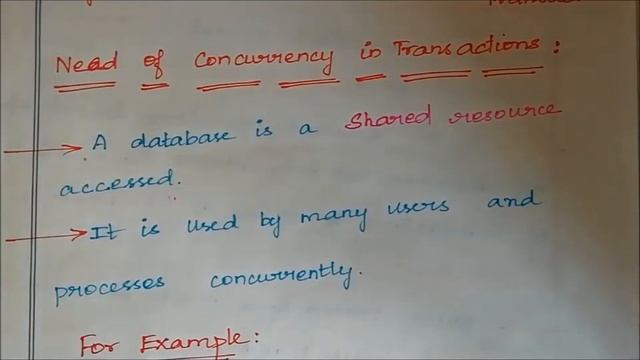 Need of Concurrency in Transactions:
A database is a shared resource
accessed.
It is used by many users and
processes concurrently.
For Example: